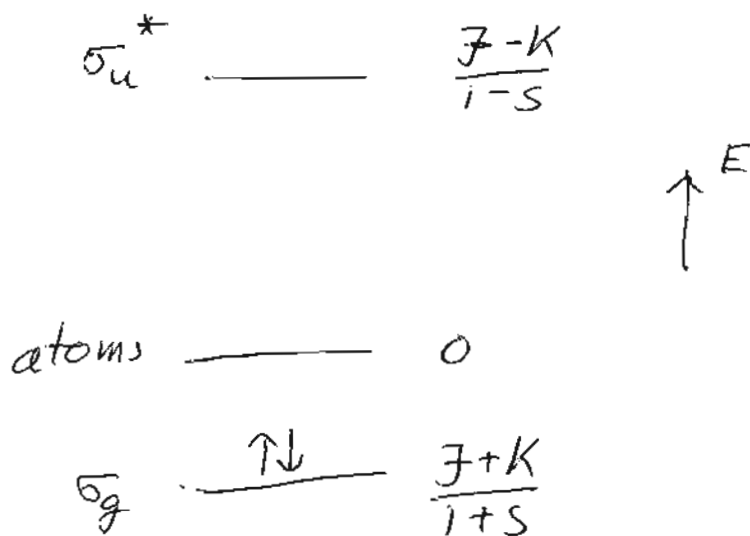 σu* J-K/1-S
E
atoms 0
σg ↑↓ J+K/1+S